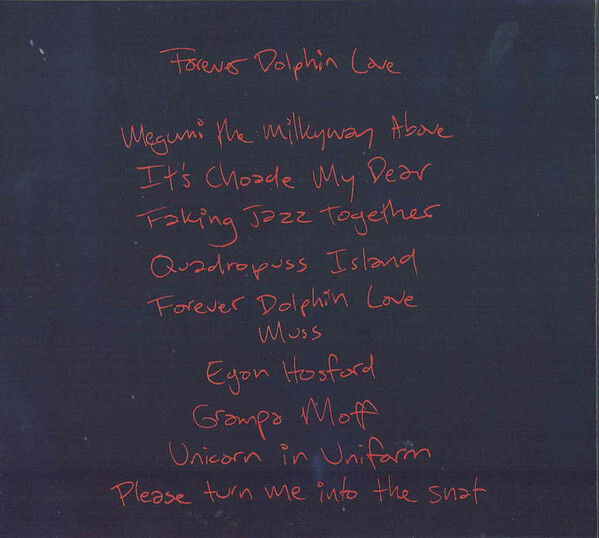 Forever Dolphin Love
Megumi the Milkyway Above
It's Choade My Dear
Faking Jazz Together
Quadropuss Island
Forever Dolphin Love
Muss
Egon Hosford
Grampa Moff
Unicorn in Uniform
Please turn me into the snat